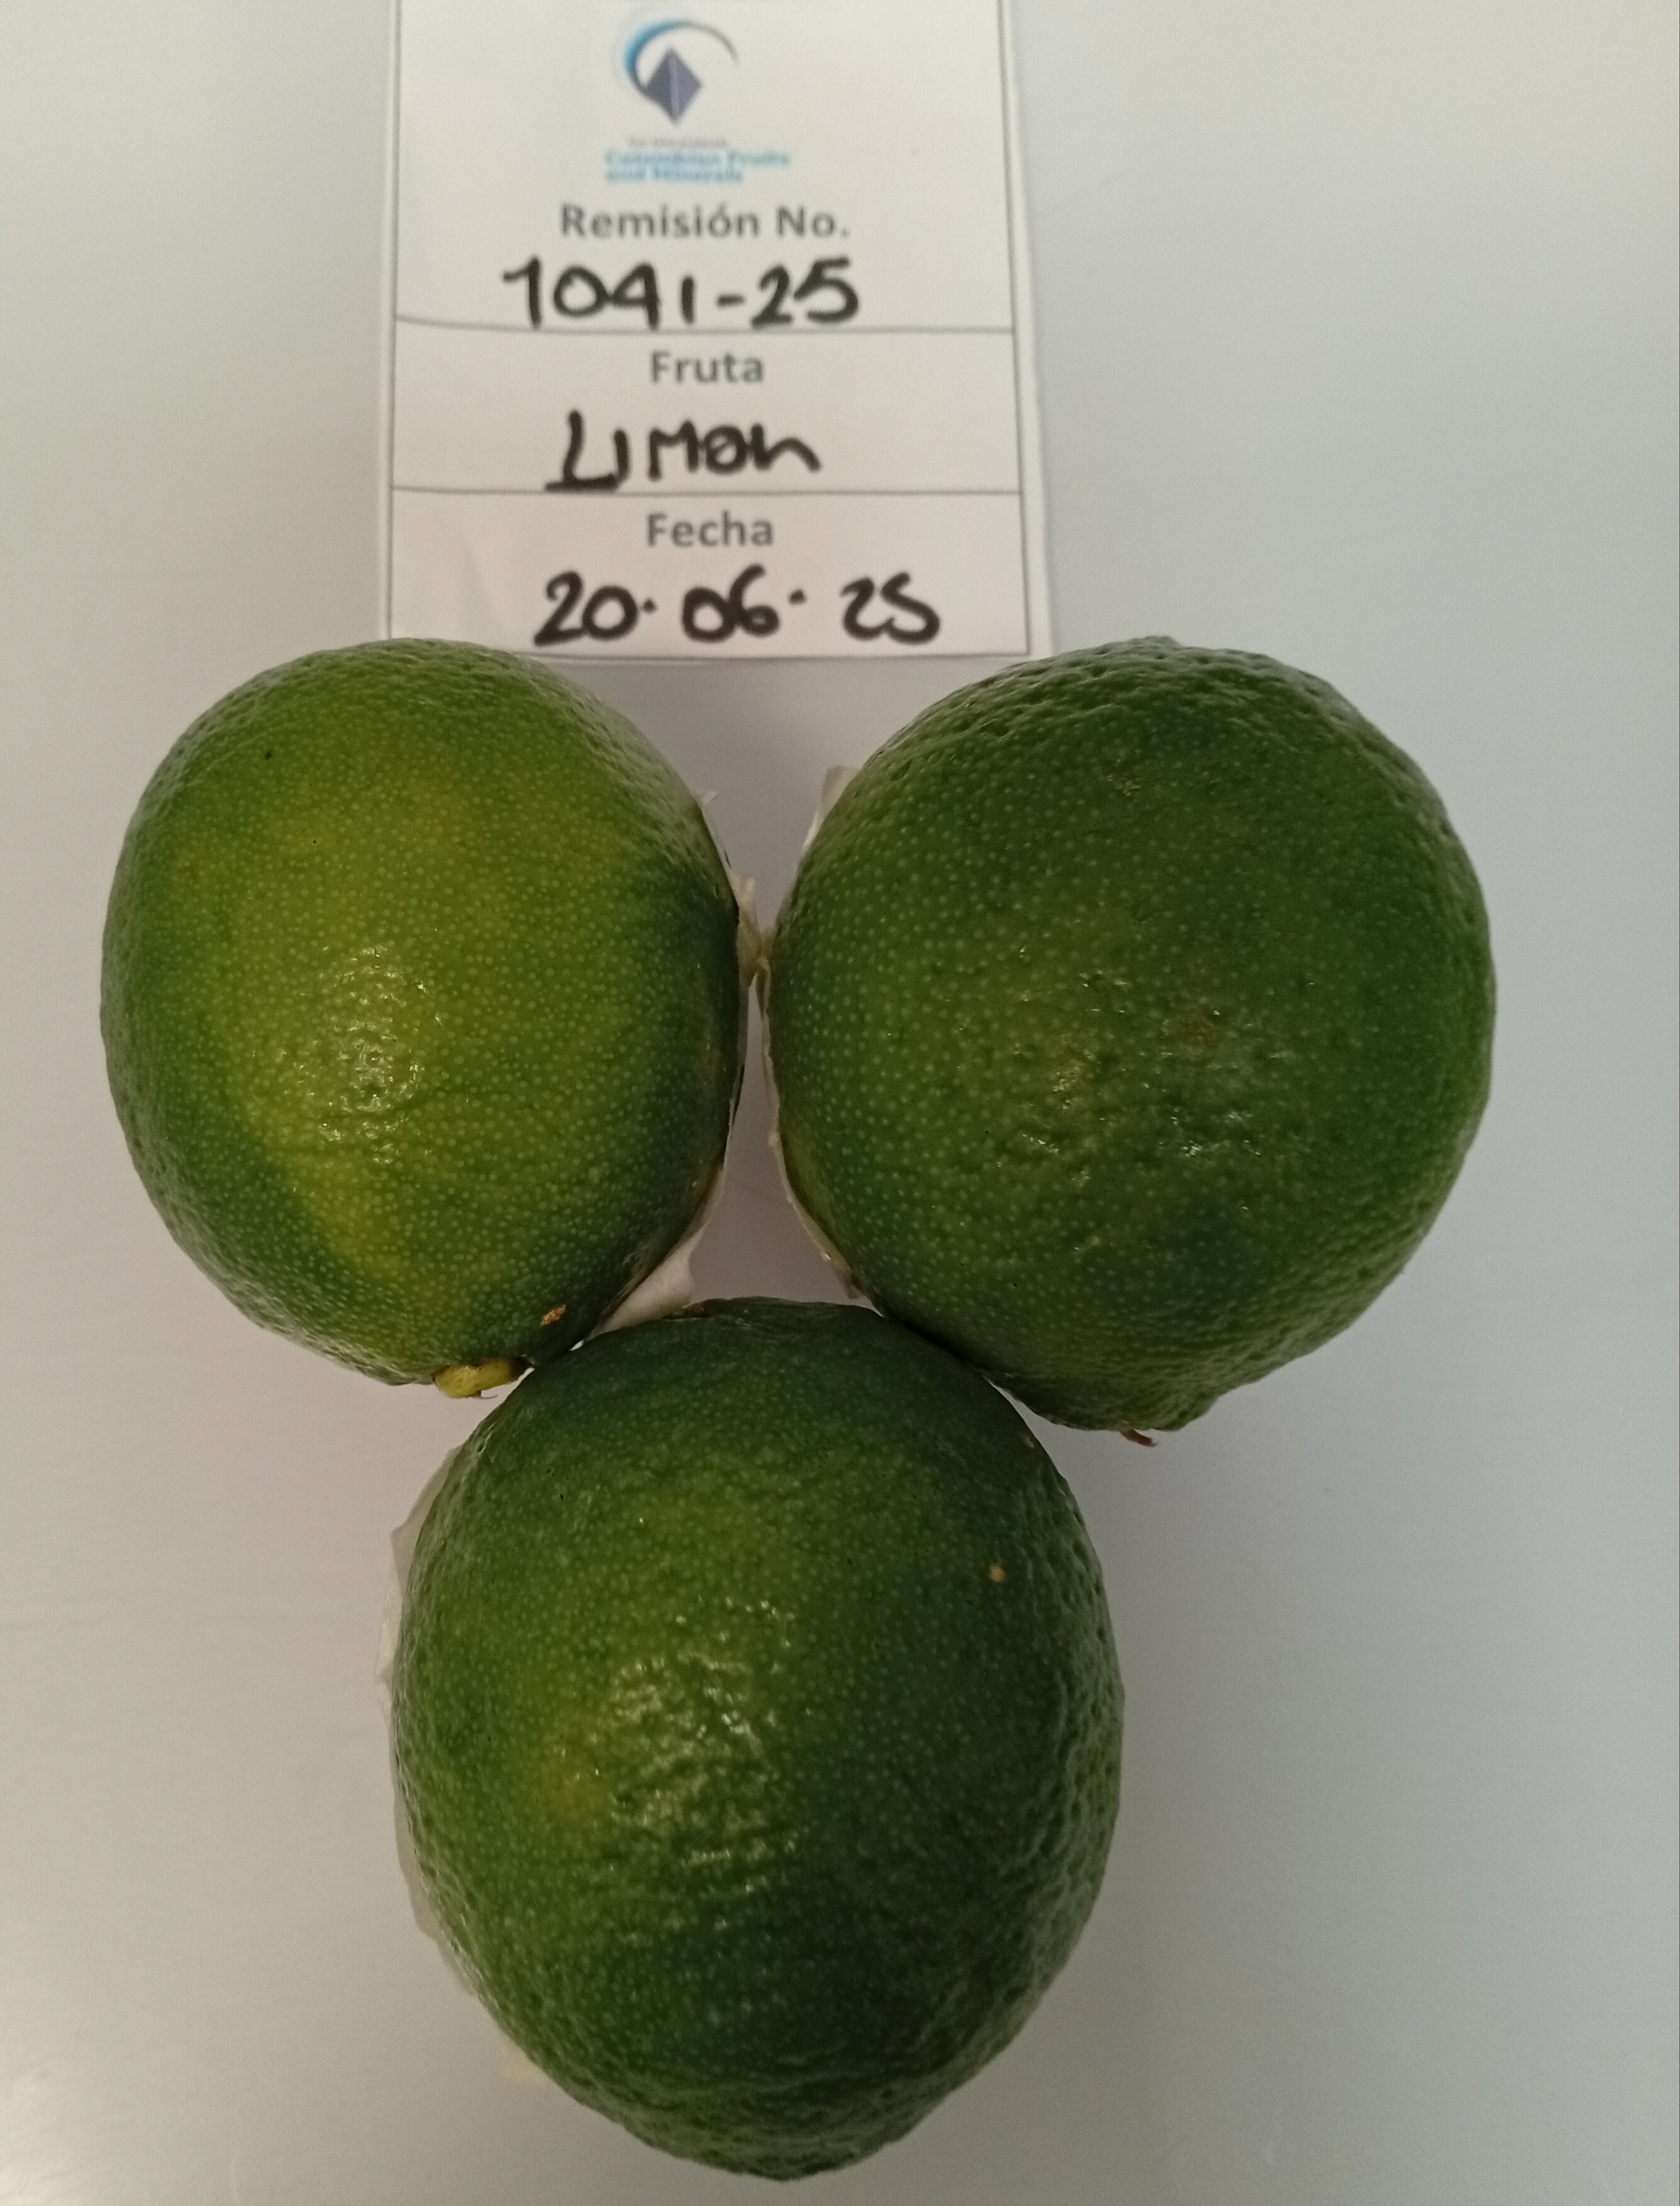 Colombian Fruits
and Minerals
Remisión No.
1041-25
Fruta
LIMON
Fecha
20·06·25